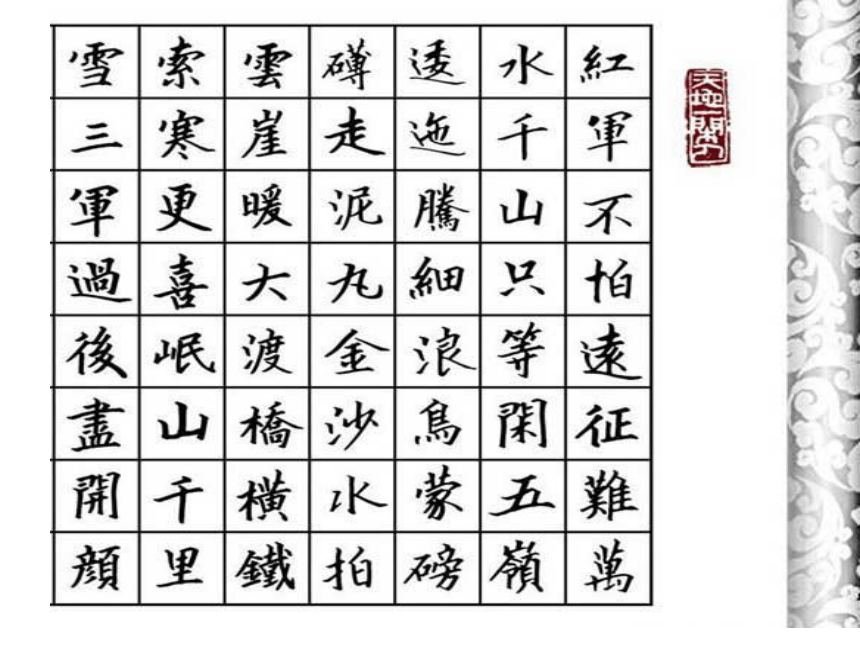 紅軍不怕遠征難萬
水千山只等閑五嶺
逶迤騰細浪烏蒙磅
礴走泥丸金沙水拍
雲崖暖大渡橋橫鐵
索寒更喜岷山千里
雪三軍過後盡開顏